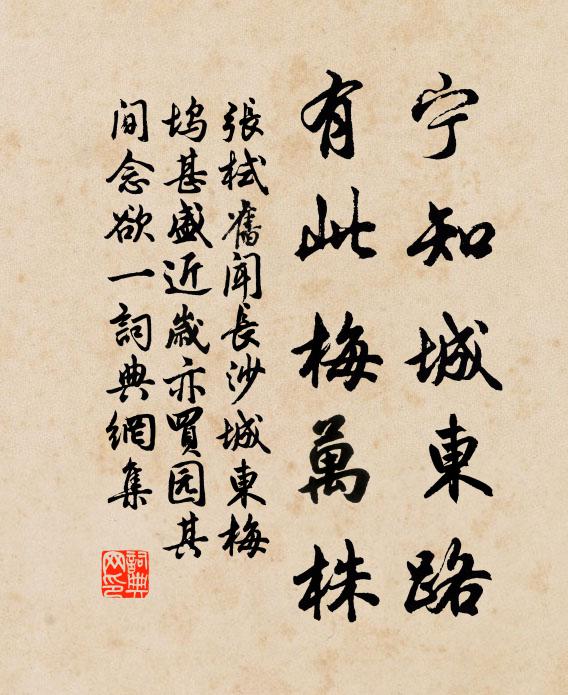 宁知城東路
有此梅萬株
張栻舊聞長沙城東梅
塢甚盛近歲亦買园其
间念欲一詞典網集
詞典網印